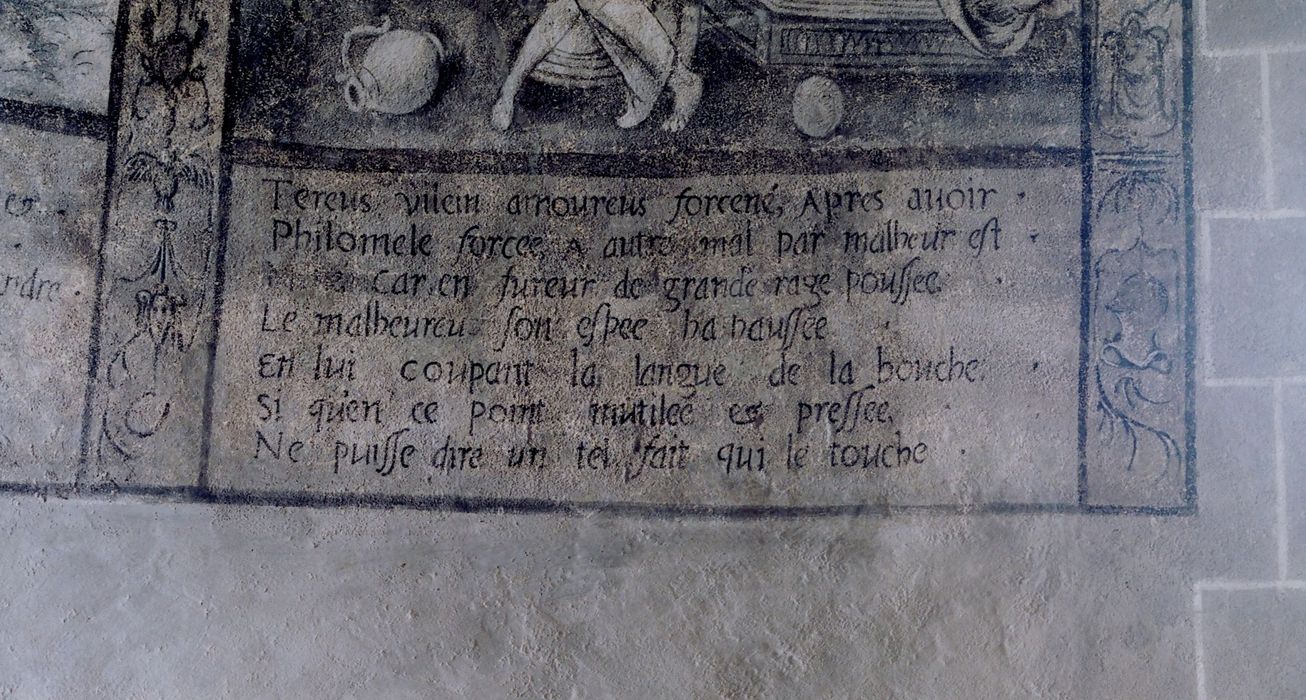 es
ndre.
Tereus vilein amoureus forcené, Apres auoir
Philomele forcee, a autre mal par malheur est
Car en fureur de grande rage poussee.
Le malheureus son espee ha haussee
En lui coupant la langue de la bouche.
Si qu'en ce point mutilee et pressee,
Ne puisse dire un tel fait qui le touche.